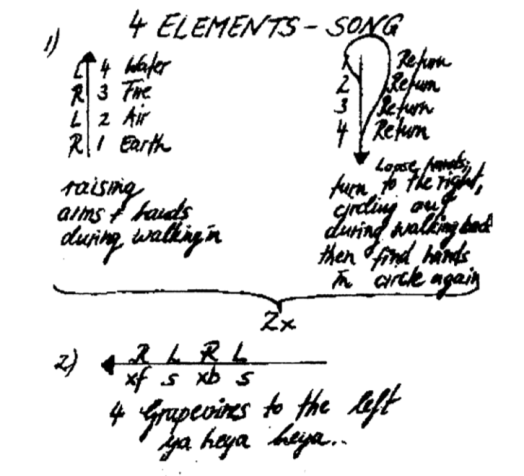 4 ELEMENTS - SONG
1)
L 4 Water
R 3 Fire
L 2 Air
R 1 Earth
raising
arms + hands
during walking in
1 Return
2 Return
3 Return
4 Return
Loose hands,
turn to the right,
circling out
during walking back
then find hands
in circle again
2x
2)
R L R L
xf s xb s
4 Grapevines to the left
ya heya heya..